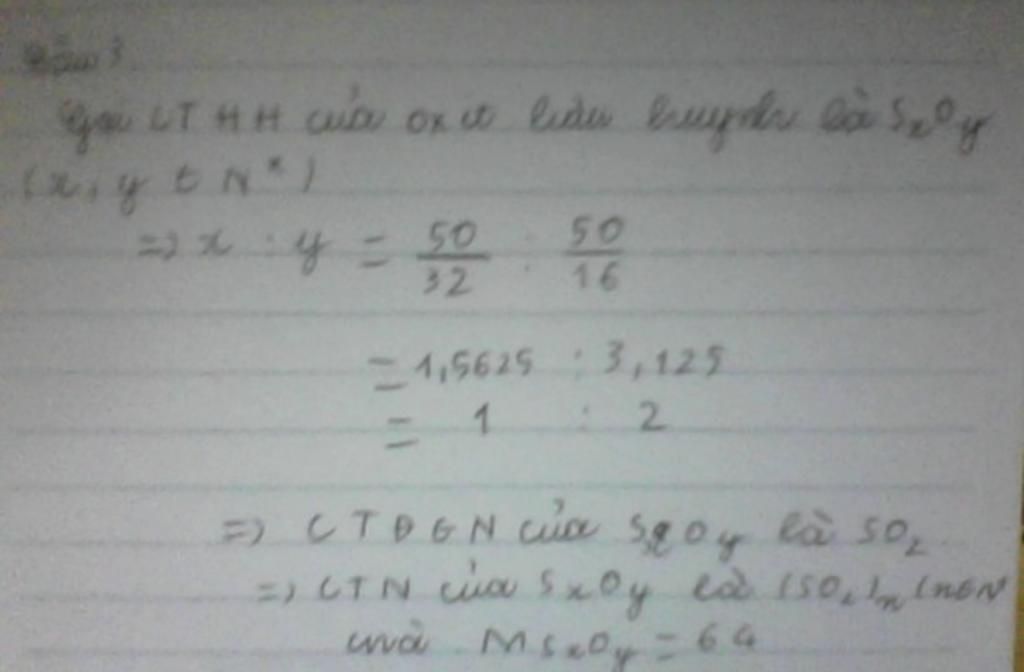 Câu 3
Gọi CTHH của oxit lưu huỳnh là SxOy
(x, y ∈ N*)
=> x : y = 50/32 : 50/16
= 1,5625 : 3,125
= 1 : 2
=> CTĐGN của SxOy là SO2
=> CTN của SxOy là (SO2)n (n∈N
mà MSxOy = 64